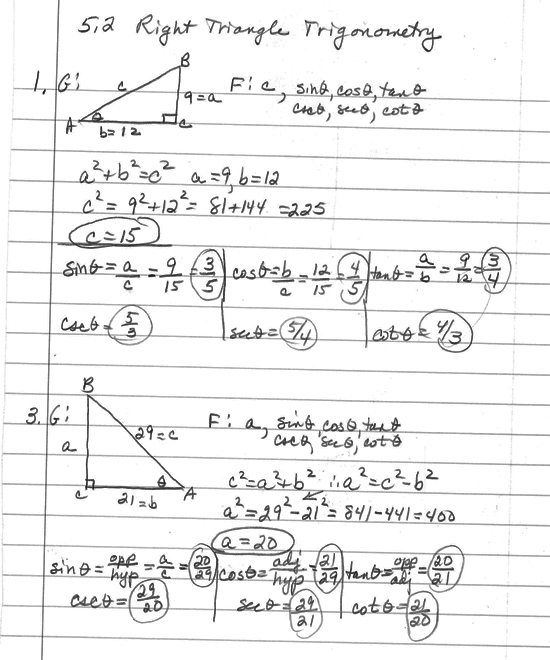 5.2 Right Triangle Trigonometry
1. G: B
c 9=a F: c, sinθ, cosθ, tanθ
A θ C cscθ, secθ, cotθ
b=12
a²+b²=c² a=9, b=12
c² = 9²+12² = 81+144 = 225
c=15
sinθ = a/c = 9/15 = 3/5 cosθ = b/c = 12/15 = 4/5 tanθ = a/b = 9/12 = 3/4
cscθ = 5/3 secθ = 5/4 cotθ = 4/3
B
3. G: 29=c F: a, sinθ, cosθ, tanθ
a cscθ, secθ, cotθ
c²=a²+b² ∴ a²=c²-b²
C θ A
21=b a²=29²-21²=841-441=400
a=20
sinθ = opp/hyp = a/c = 20/29 cosθ = adj/hyp = 21/29 tanθ = opp/adj = 20/21
cscθ = 29/20 secθ = 29/21 cotθ = 21/20